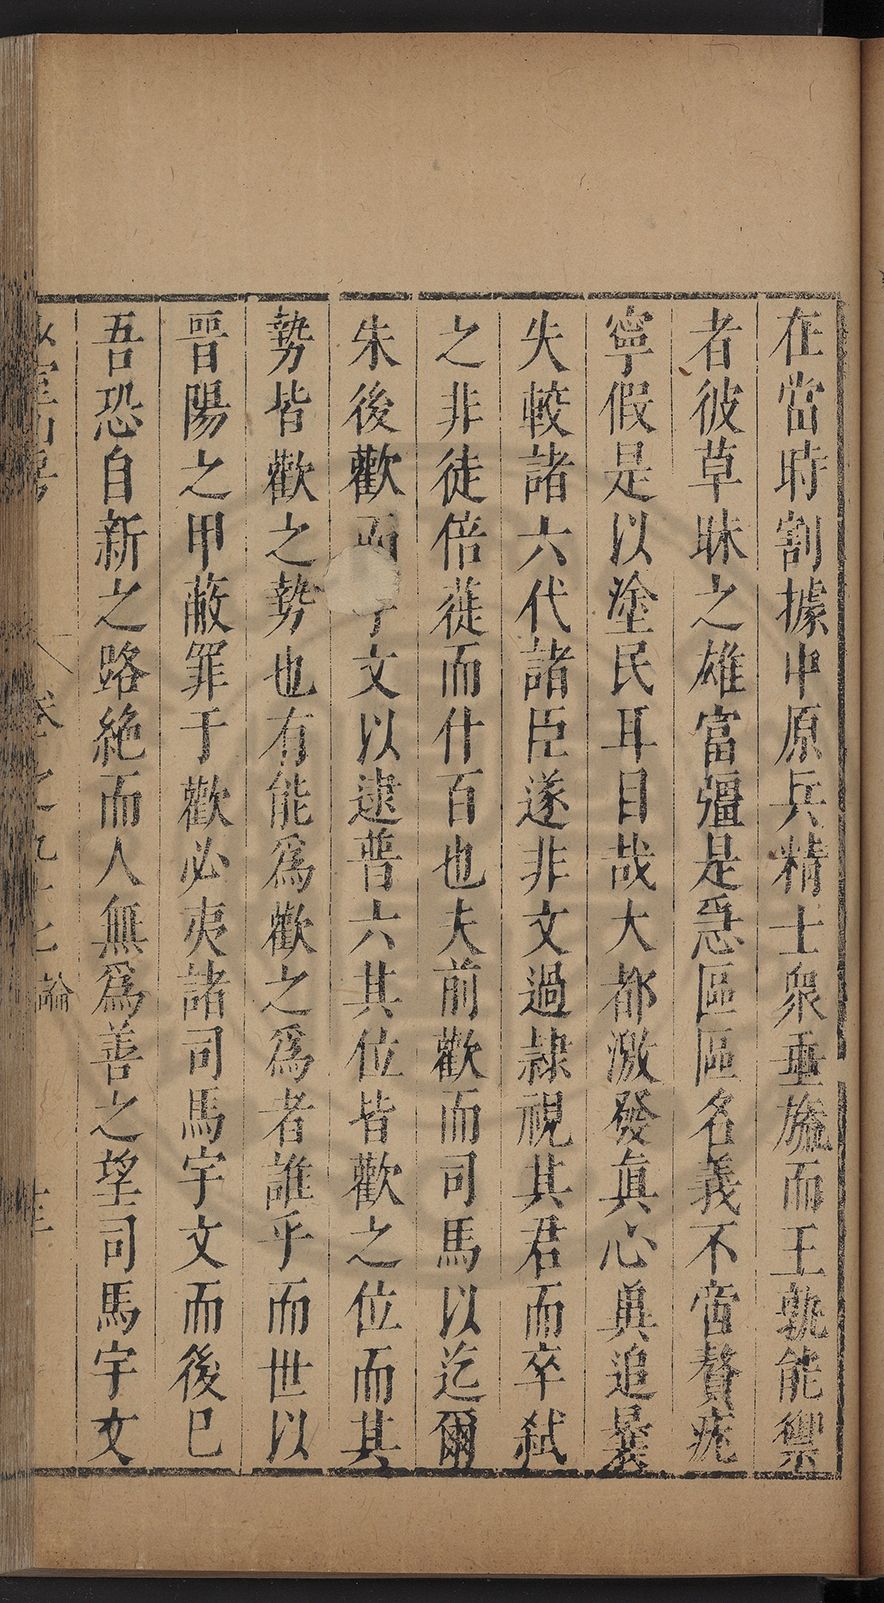 在當時割據中原兵精士衆垂旒而王孰能禦
者彼草昧之雄富彊是急區區名義不啻贅疣
寧假是以塗民耳目哉大都激發眞心眞追曩
失較諸六代諸臣遂非文過隷視其君而卒弑
之非徒倍蓰而什百也夫前歡而司馬以迄爾
朱後歡而宇文以逮普六其位皆歡之位而其
勢皆歡之勢也有能爲歡之爲者誰乎而世以
晉陽之甲蔽罪于歡必夷諸司馬宇文而後已
吾恐自新之路絶而人無爲善之望司馬宇文
少室山房 卷之九十七 論